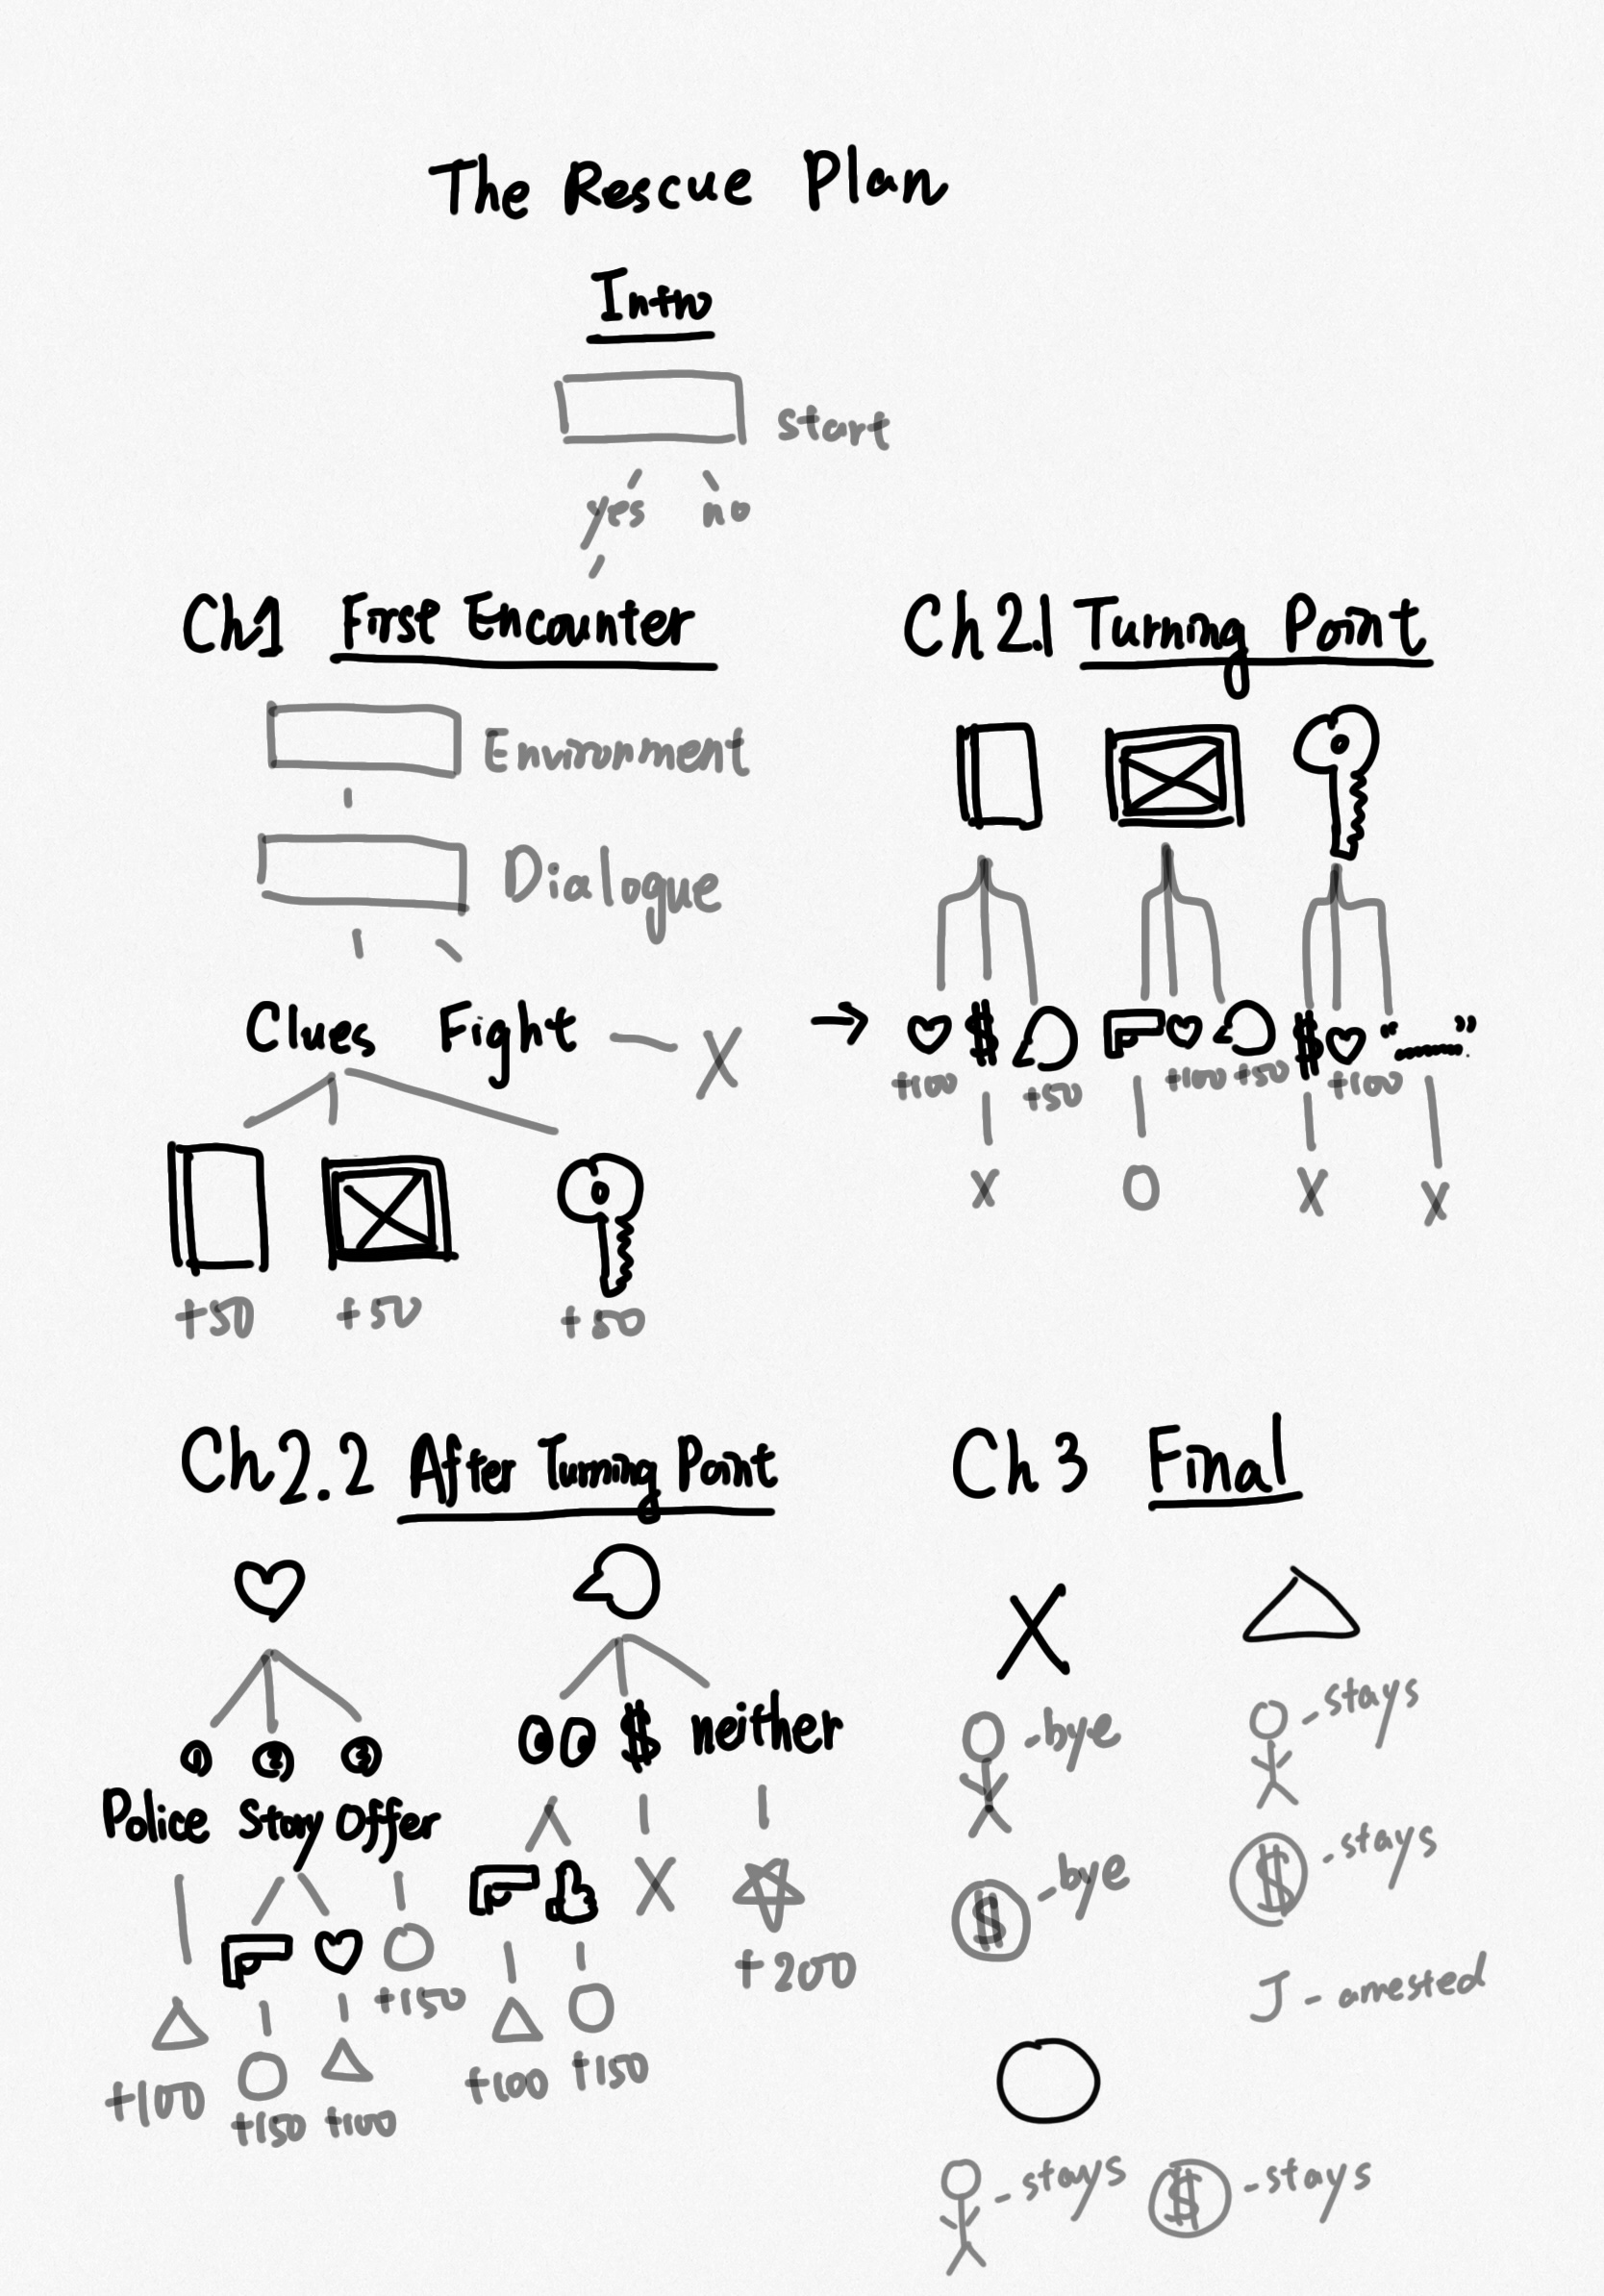 The Rescue Plan
Intro
start
yes no
Ch1 First Encounter
Environment
Dialogue
Clues Fight X
+50 +50 +50
Ch 2.1 Turning Point
$ $ "
+100 +50 +100 +50 +100
X O X X
Ch2.2 After Turning Point
① ② ③
Police Stay Offer
+150
+100 +150 +100
$ neither
X
+200
+100 +150
Ch 3 Final
X
-bye
$ -bye
-stays
$ -stays
J - arrested
-stays $ -stays